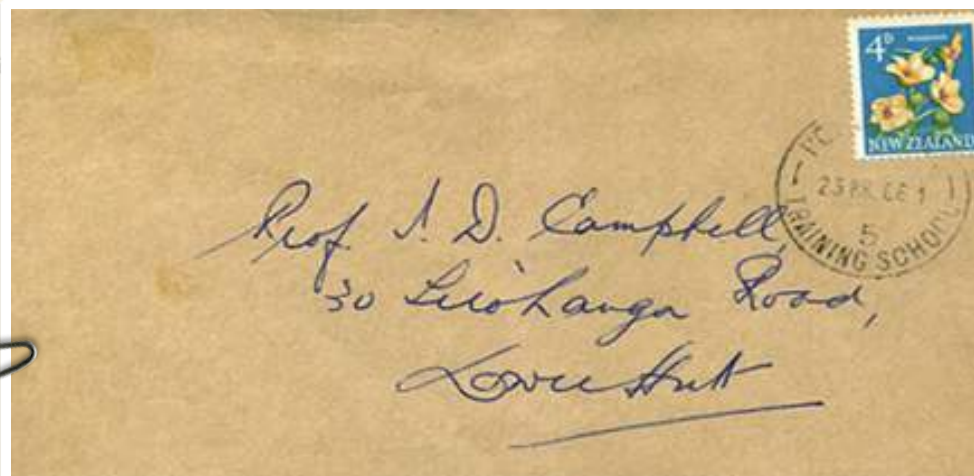 4D
NEW ZEALAND
TRAINING SCHOOL
5
Prof. I. D. Campbell,
30 Road,
Lower Hutt